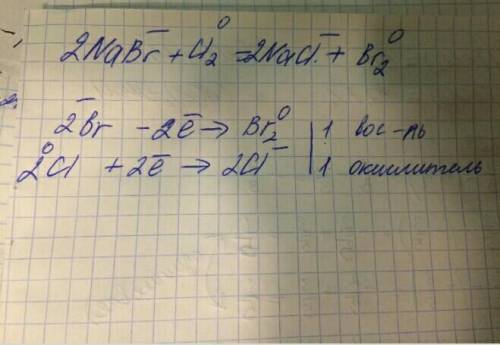 2NaBr⁻ + Cl₂⁰ = 2NaCl⁻ + Br₂⁰
2Br⁻ - 2ē → Br₂⁰ | 1 вос-ль
2Cl⁰ + 2ē → 2Cl⁻ | 1 окислитель